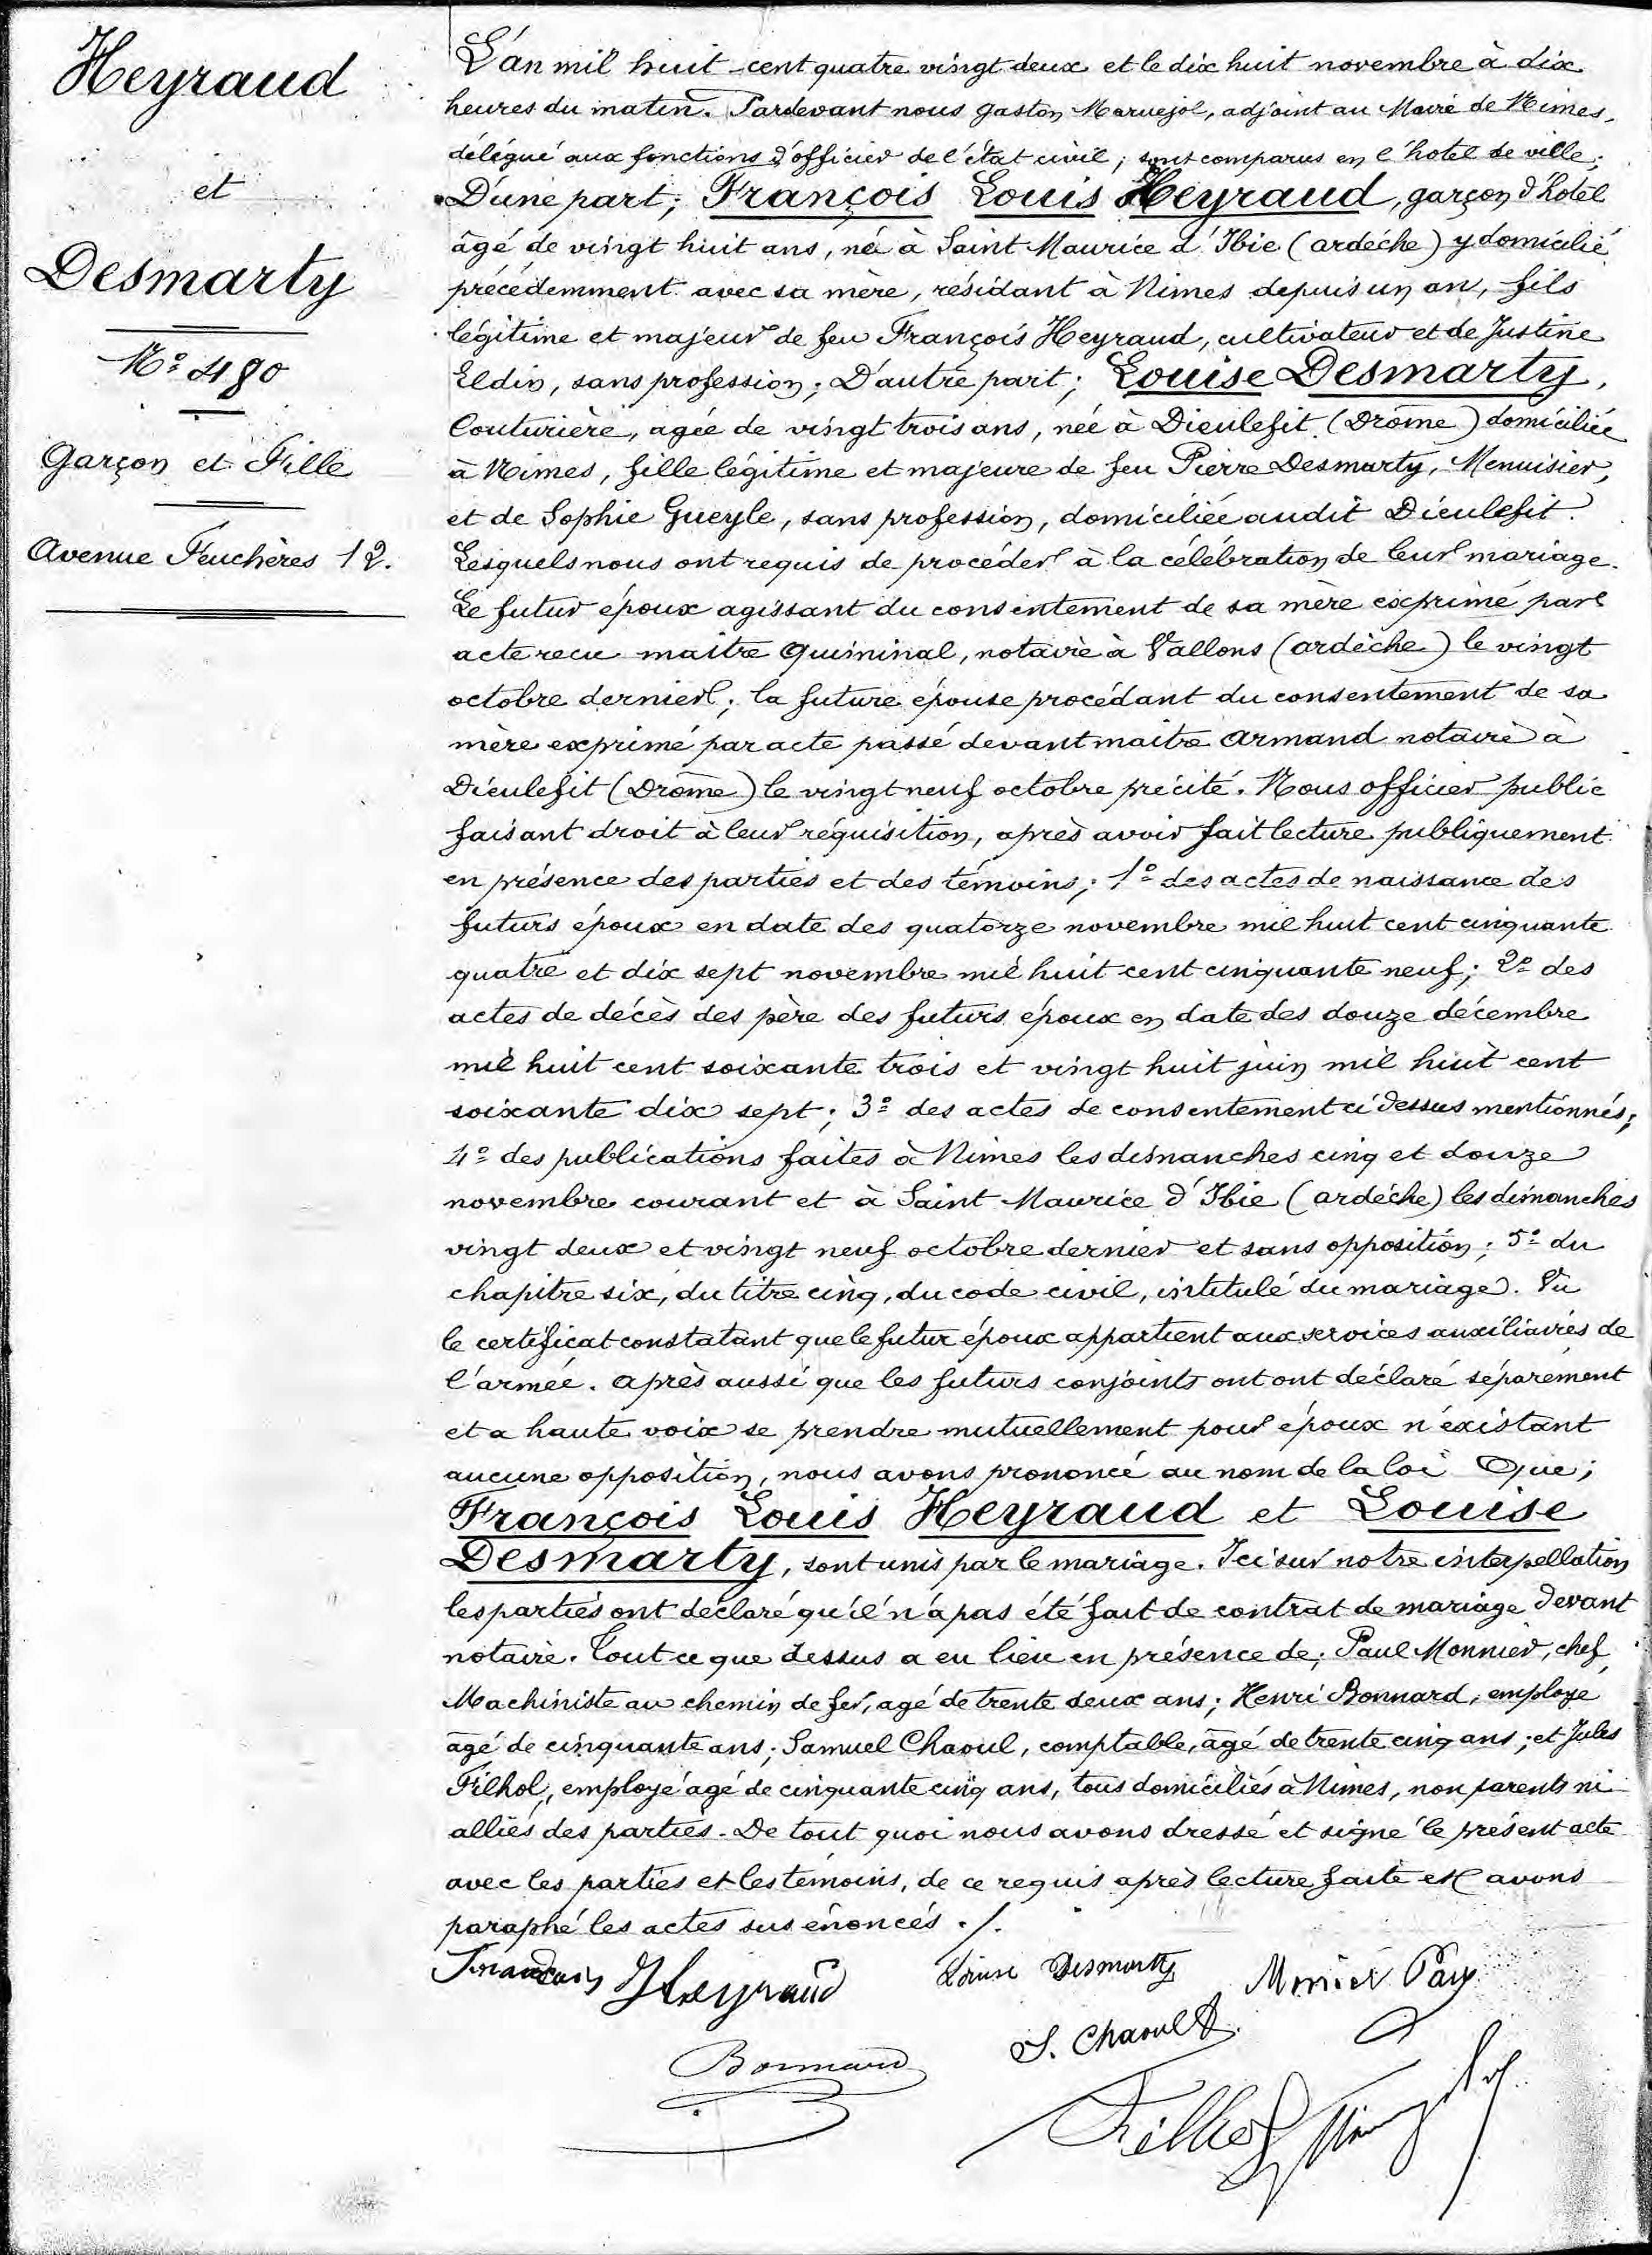 Heyraud
et
Desmarty
N° 480
Garçon et Fille
Avenue Feuchères 12.
L'an mil huit-cent quatre vingt deux et le dix huit novembre à dix
heures du matin. Pardevant nous Gaston Maruejol, adjoint au Maire de Nimes,
délégué aux fonctions d'officier de l'état civil; sont comparus en l'hotel de ville;
D'une part; François Louis Heyraud, garçon d'hotel
âgé de vingt huit ans, né à Saint Maurice d'Ibie (ardéche) y domicilié
précédemment avec sa mère, résidant à Nimes depuis un an, fils
légitime et majeur de feu François Heyraud, cultivateur et de Justine
Eldin, sans profession; D'autre part; Louise Desmarty,
Couturière, agée de vingt trois ans, née à Dieulefit (Drôme) domiciliée
à Nimes, fille légitime et majeure de feu Pierre Desmarty, Menuisier,
et de Sophie Gueyle, sans profession, domiciliée audit Dieulefit.
Lesquels nous ont requis de procéder à la célébration de leur mariage.
Le futur époux agissant du consentement de sa mère exprimé par
acte recu maitre Quininal, notaire à Vallons (ardèche) le vingt
octobre dernier; la future épouse procédant du consentement de sa
mère exprimé par acte passé devant maitre Armand notaire à
Dieulefit (Drôme) le vingt neuf octobre précité. Nous officier public
faisant droit à leur réquisition, après avoir fait lecture publiquement
en présence des parties et des témoins; 1° des actes de naissance des
futurs époux en date des quatorze novembre mil huit cent cinquante
quatre et dix sept novembre mil huit cent cinquante neuf; 2° des
actes de décès des père des futurs époux en date des douze décembre
mil huit cent soixante trois et vingt huit juin mil huit cent
soixante dix sept; 3° des actes de consentement ci dessus mentionnés;
4° des publications faites à Nimes les dimanches cinq et douze
novembre courant et à Saint Maurice d'Ibie (ardéche) les dimanches
vingt deux et vingt neuf octobre dernier et sans opposition; 5° du
chapitre six, du titre cinq, du code civil, intitulé du mariage. Vu
le certificat constatant que le futur époux appartient aux services auxiliaires de
l'armée. Après aussi que les futurs conjoints ont ont déclaré séparément
et a haute voix se prendre mutuellement pour époux n'existant
aucune opposition, nous avons prononcé au nom de la loi Que;
François Louis Heyraud et Louise
Desmarty, sont unis par le mariage. Ici sur notre interpellation
les parties ont déclaré qu'il n'a pas été fait de contrat de mariage devant
notaire. Tout ce que dessus a eu lieu en présence de; Paul Monnier, chef
Machiniste au chemin de fer, agé de trente deux ans; Henri Bonnard, employe
âgé de cinquante ans; Samuel Chaoul, comptable, âgé de trente cinq ans; et Jules
Filhol, employé agé de cinquante cinq ans, tous domiciliés à Nimes, non parents ni
alliés des parties. De tout quoi nous avons dressé et signé le présent acte
avec les parties et les témoins, de ce requis après lecture faite et avons
paraphé les actes sus énoncés ./.
Francois Heyraud Louise Desmarty
Bonnard S. Chaoul
Filhol